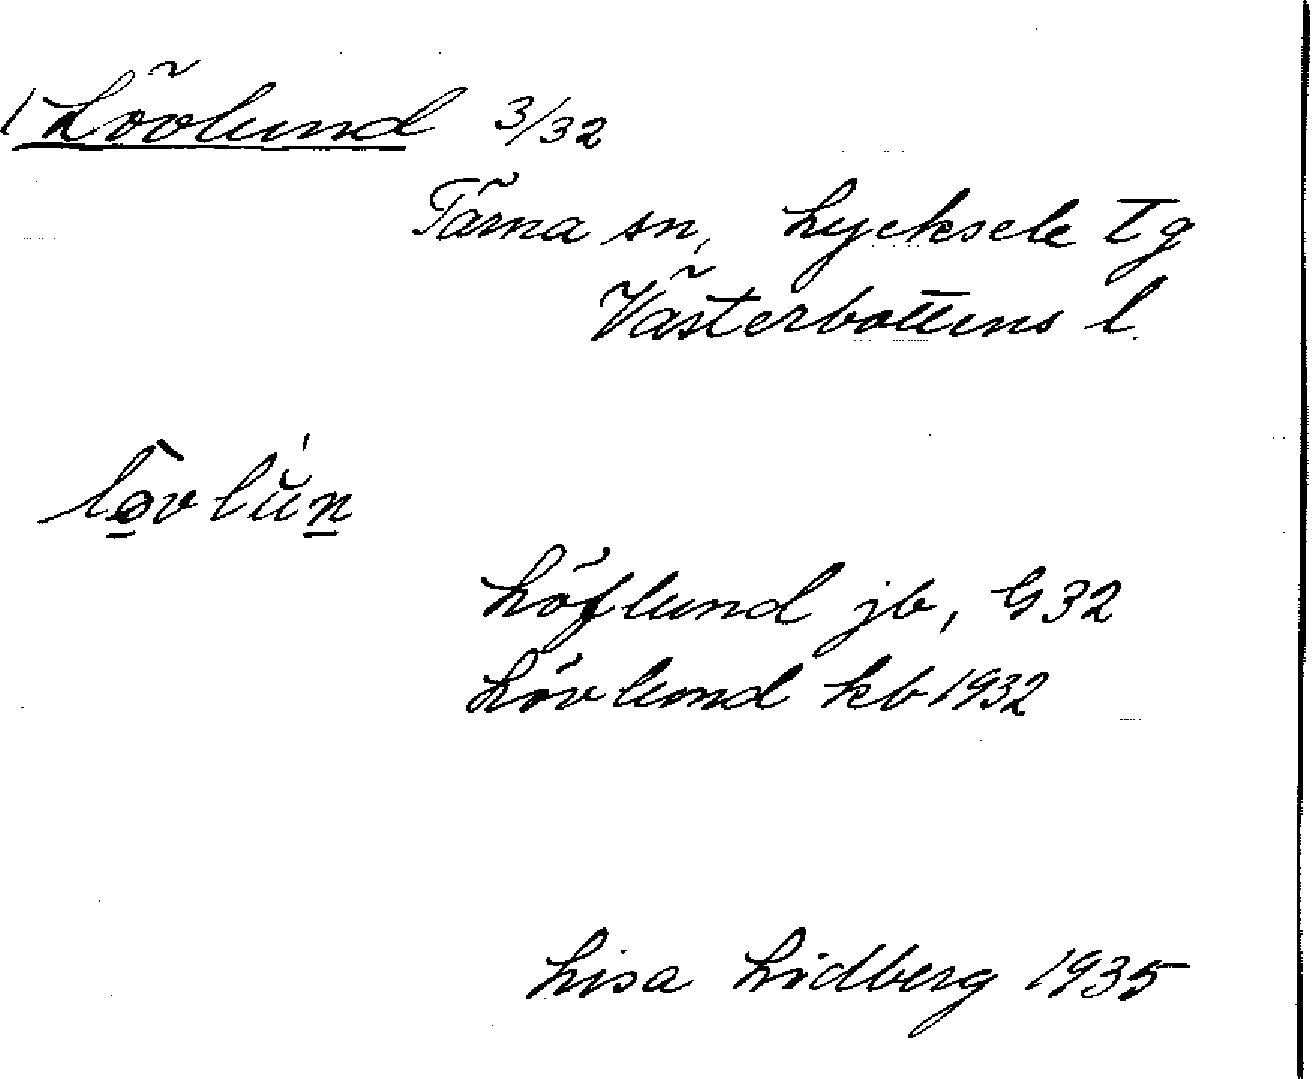 Lövlund 3/32
Tärna sn, Lycksele Tg
Västerbottens l.
Löflund jb, G32
Lövlund kb 1932
Lisa Lidberg 1935